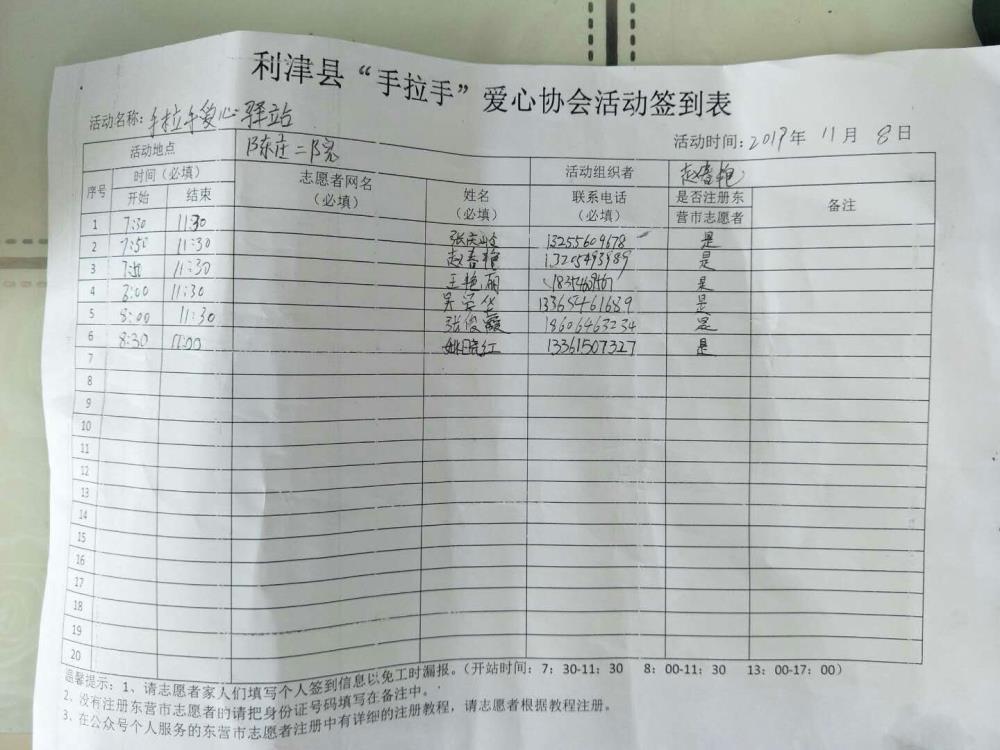 利津县“手拉手”爱心协会活动签到表
活动名称：手拉手爱心驿站
活动时间：2017年 11月 8日
活动地点 陈庄二院 活动组织者 赵春艳
序号 时间（必填） 志愿者网名（必填） 姓名（必填） 联系电话（必填） 是否注册东营市志愿者 备注
开始 结束
1 7:30 11:30 张庆 13255609678 是
2 7:50 11:30 赵春艳 13205493989 是
3 11:30 王艳丽 是
4 8:00 11:30 吴 华 13365461689 是
5 8:00 11:30 张俊霞 18606463234 是
6 8:30 11:00 姚晓红 13361507327 是
7
8
9
10
11
12
13
14
15
16
17
18
19
20
温馨提示：1、请志愿者家人们填写个人签到信息以免工时漏报。（开站时间：7：30-11：30 8：00-11：30 13：00-17：00）
2、没有注册东营市志愿者的请把身份证号码填写在备注中。
3、在公众号个人服务的东营市志愿者注册中有详细的注册教程，请志愿者根据教程注册。